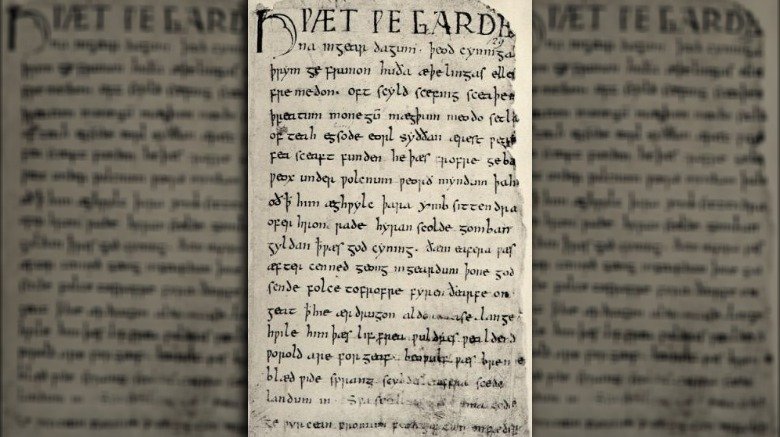 HǷÆT ǷE GARDE
29
na ingear dagum. þeod cyninga
þrym ge frunon huða æþelingas elle
fremedon. oft scyld scefing sceaþe
þreatum monegū mægþum meodo setla
of teah egsode eorl syððan ærest ƿear
fea sceaft funden he þæs frofre geba
ƿeox under ƿolcnum ƿeorð myndum þah
oð þꝥ him æghƿylc þara ymb sittendra
ofer hron rade hyran scolde gomban
gyldan þꝥ ƿæs god cyning. ðæm eafera ƿæs
æfter cenned geong ingeardum þone god
sende folce tofrofre fyren ðearfe on
geat þꝥ hie ær drugon aldo ase. lange
hƿile him þæs lif frea ƿuldres ƿealdend
ƿorold are for geaf. beoƿulf ƿæs breme
blæd ƿide sprang scyldes eafera scede
landum in. Sƿa guma gode
ge ƿyrcean fromum